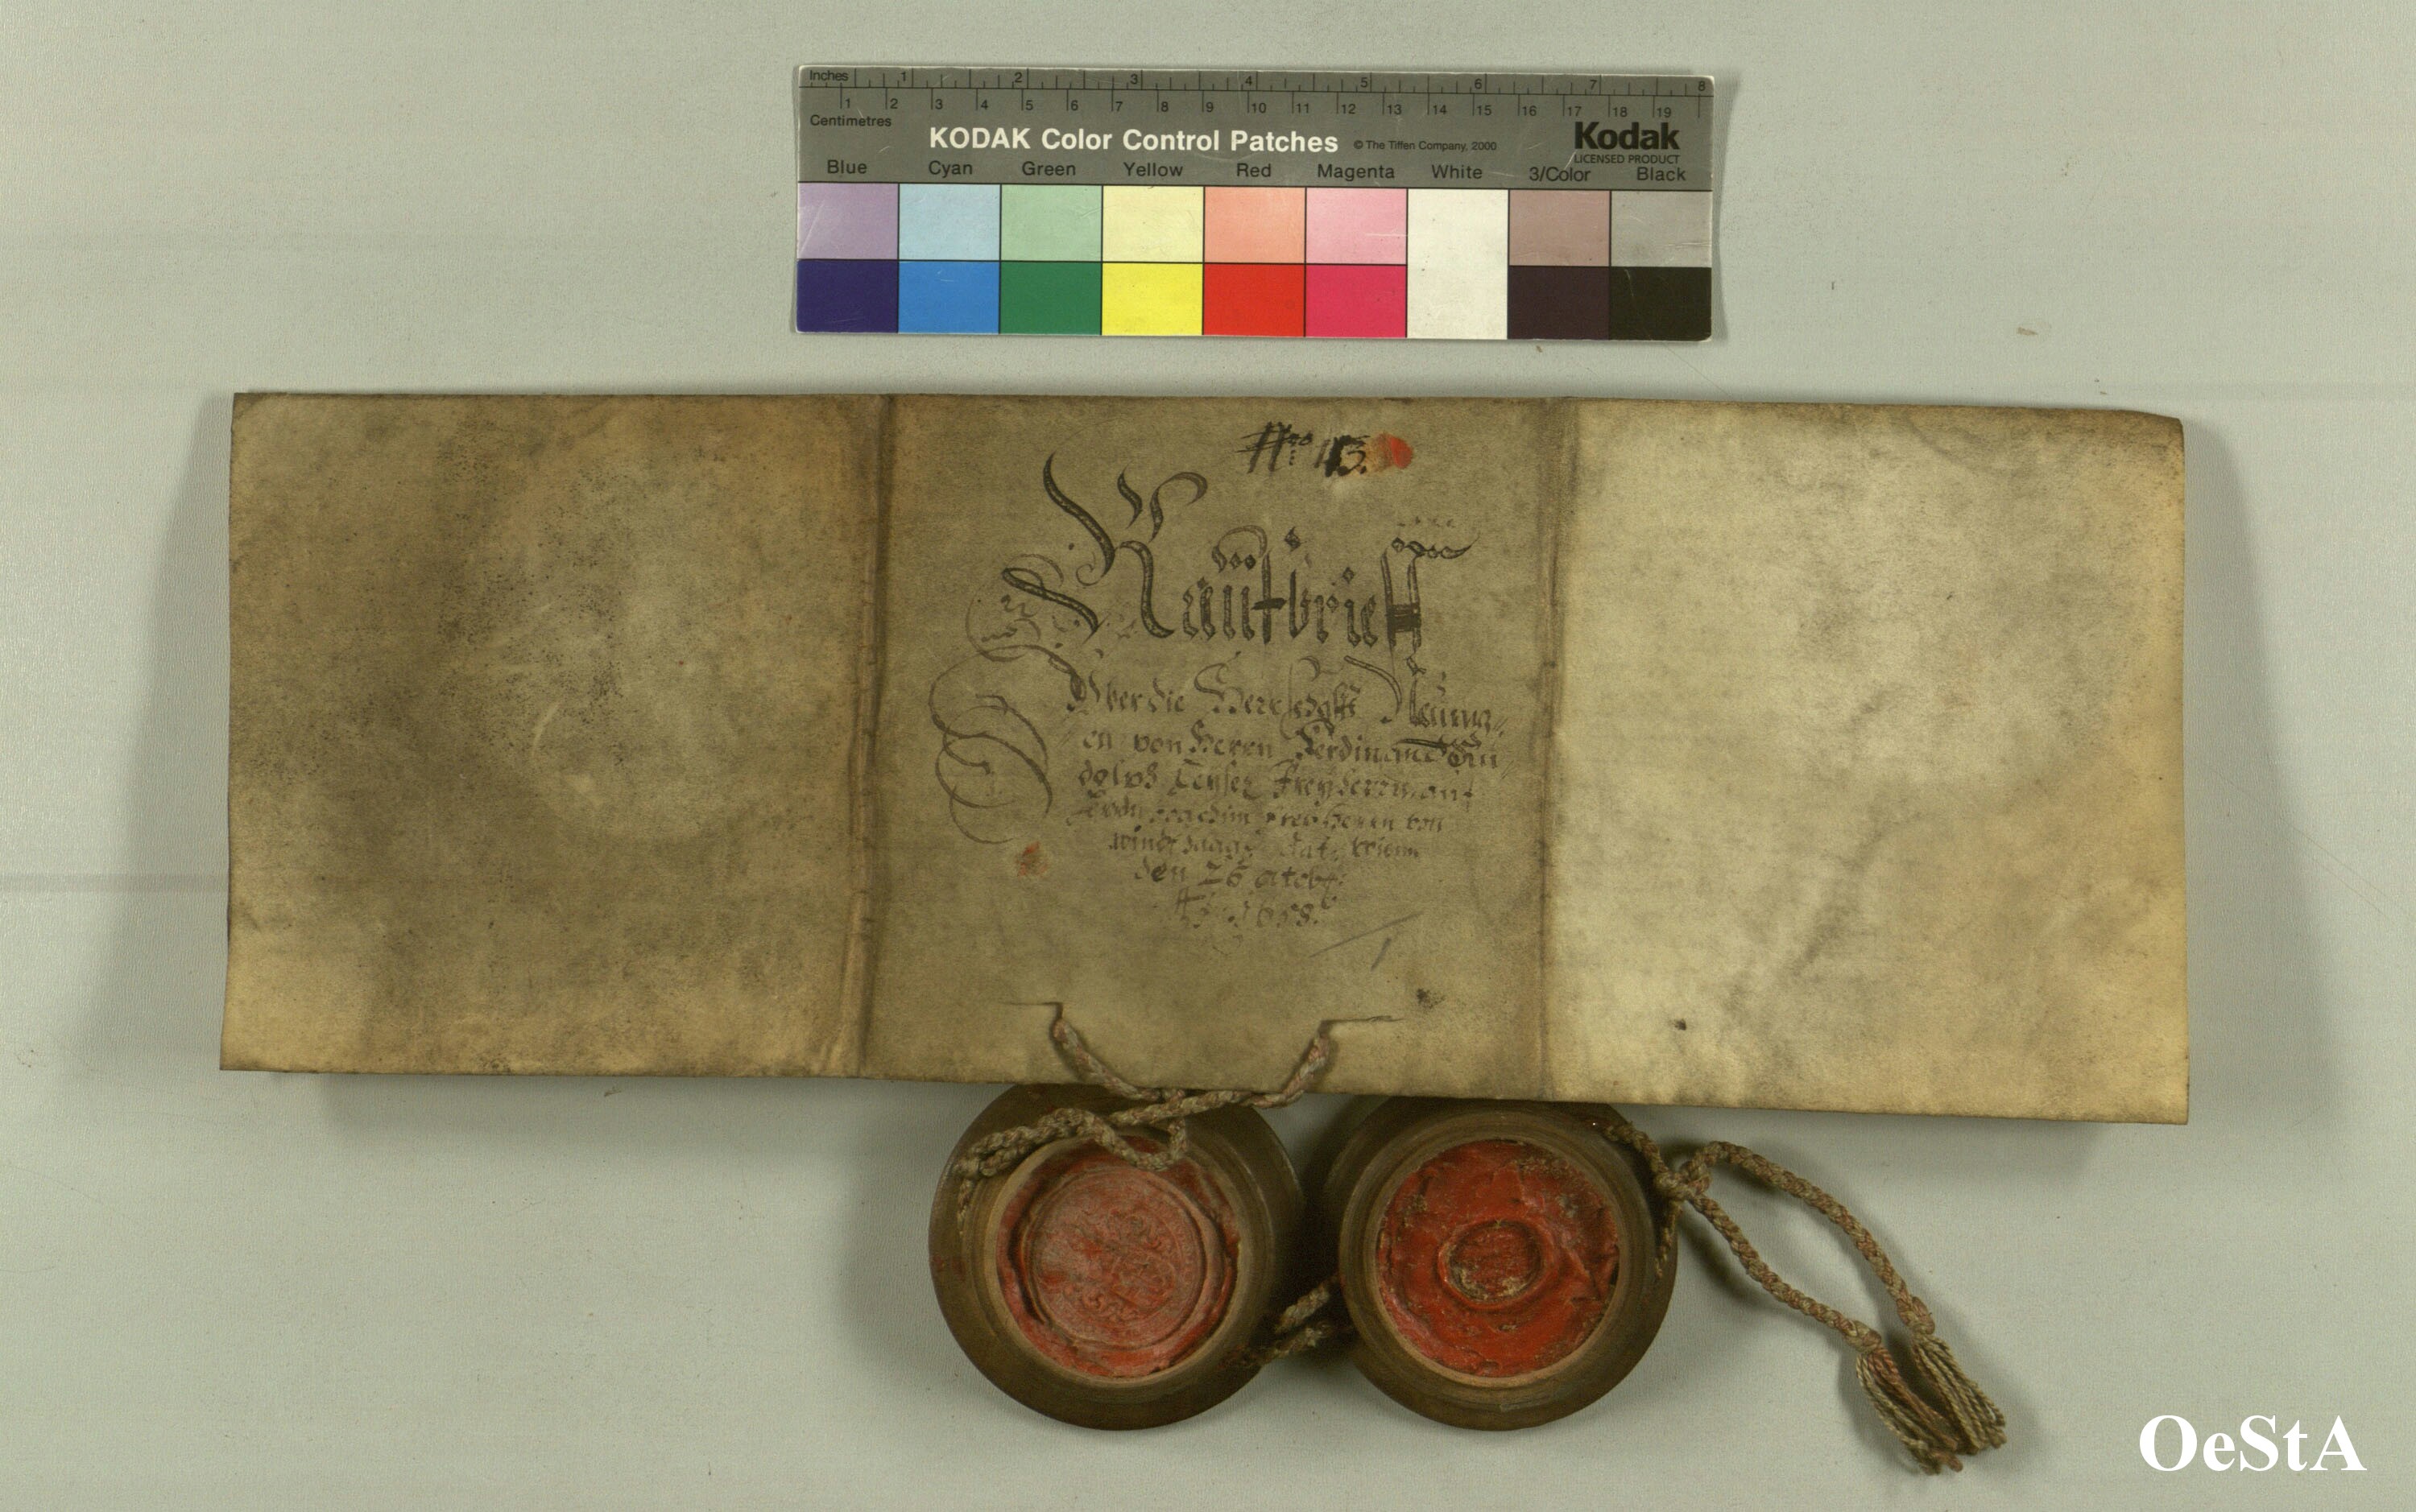 Inches 1 2 3 4 5 6 7 8
1 2 3 4 5 6 7 8 9 10 11 12 13 14 15 16 17 18 19
Centimetres
KODAK Color Control Patches © The Tiffen Company, 2000 Kodak
LICENSED PRODUCT
Blue Cyan Green Yellow Red Magenta White 3/Color Black
Kauffbrieff
Über die Herrschafft
en von Herrn Ferdinand Ru
dolph Freyherrn auf
Joachim Freyherrn von
windthaagg
den 26 octob:
1658.
OeStA